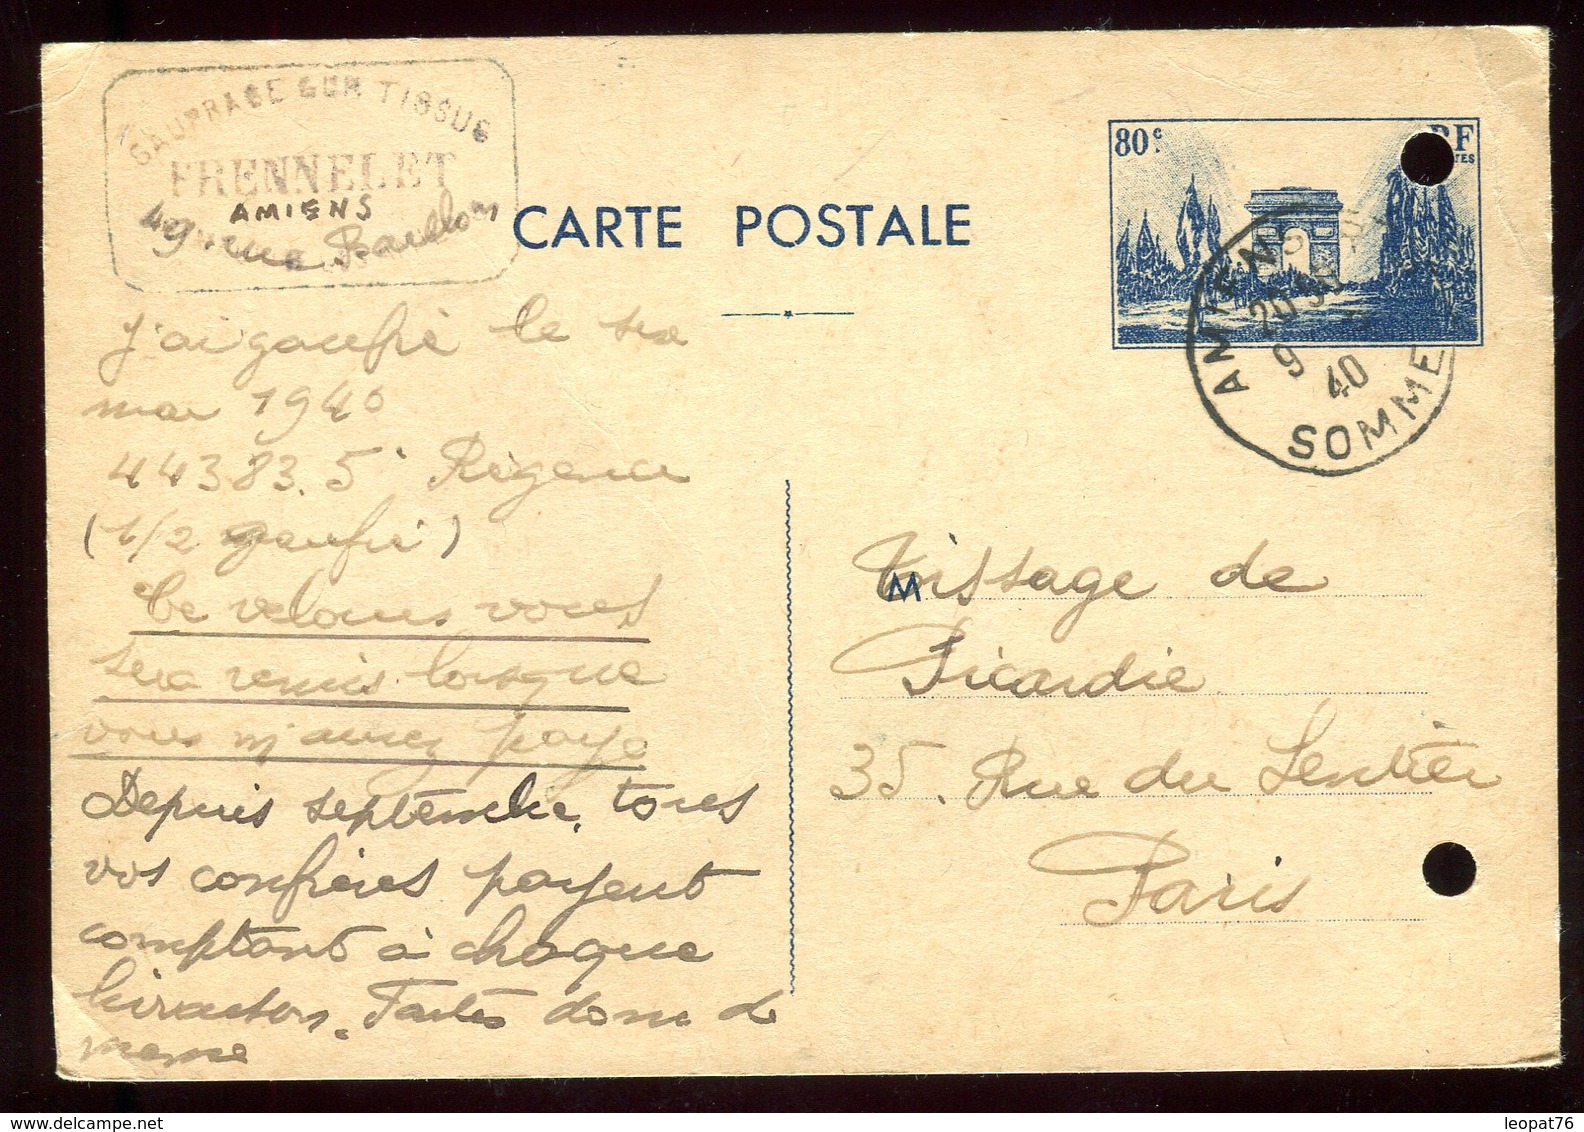 GAUFRAGE SUR TISSUS
FRENNELET
AMIENS
49 rue Baillon
CARTE POSTALE
80c. RF
POSTES
AMIENS
20 30
9 5
40
SOMME
J'ai gaufré le six
mai 1940
44383.5 Régence
(1/2 gaufré)
Ce velours vous
sera remis lorsque
vous m'aurez payé
Depuis septembre, tous
vos confrères payent
comptant à chaque
livraison. Faites donc de
même
M
Tissage de
Picardie
35. Rue du Sentier
Paris
leopat76
www.delcampe.net